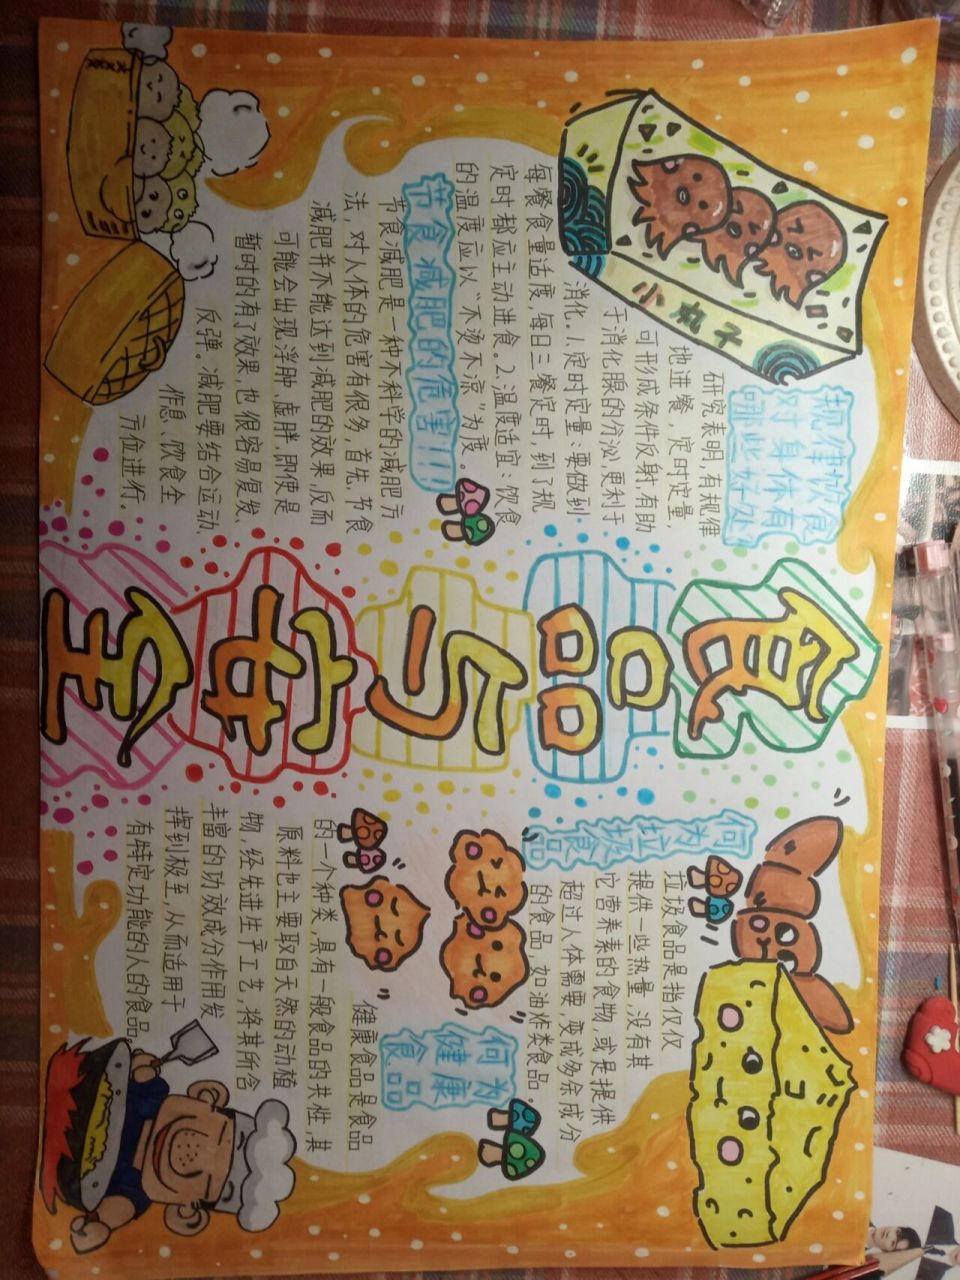 小丸子
规律饮食
对身体有
哪些好处
研究表明,有规律
地进餐,定时定量,
可形成条件反射,有助
于消化腺的分泌,更利于
消化.1.定时定量:要做到
每餐食量适度,每日三餐定时,到了规
定时都应主动进食.2.温度适宜:饮食
的温度应以“不烫不凉”为度。
节食减肥的危害!!!
节食减肥是一种不科学的减肥方
法,对人体的危害有很多,首先,节食
减肥并不能达到减肥的效果,反而
可能会出现浮肿、虚胖,即使是
暂时的有了效果,也很容易复发、
反弹。减肥要结合运动、
作息、饮食全
方位进行.
食品与安全
何为垃圾食品
垃圾食品是指仅仅
提供一些热量,没有其
它营养素的食物,或是提供
超过人体需要,变成多余成分
的食品,如油炸类食品.
何为
健康
食品
健康食品是食品
的一个种类,具有一般食品的共性,其
原料也主要取自天然的动植
物,经先进生产工艺,将其所含
丰富的功效成分作用发
挥到极至,从而适用于
有特定功能的人的食品。